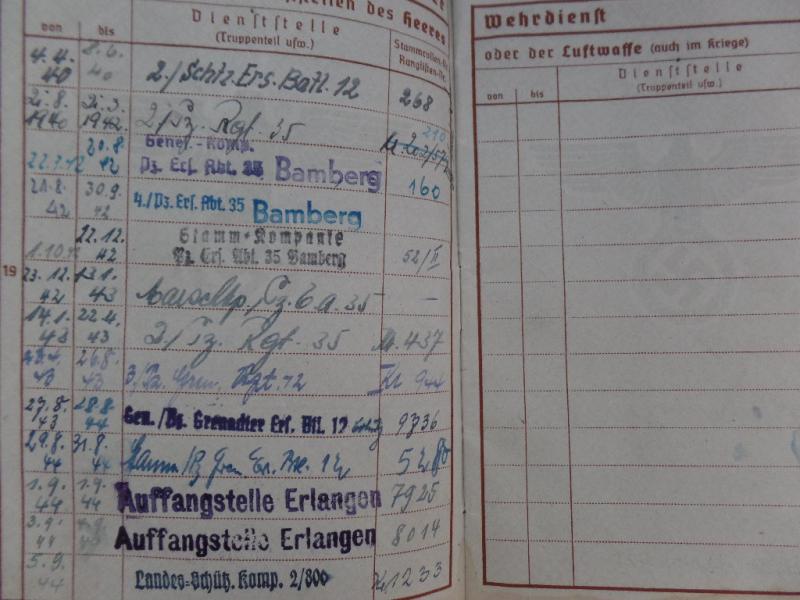 des Heeres
Dienststelle
(Truppenteil usw.)
von bis
Stammrollen-Nr.
Ranglisten-Nr.
4.4. 8.6.
40 40 2./Schtz.Ers.Batl. 12 268
21.8. 21.3.
1940 1942. 2/Pz. Rgt. 35
210
Genes.-Komp.
20.8.
22.3.42 42 Pz. Ers. Abt. 35 Bamberg 160
21.8. 30.9.
42 42 4./Pz. Ers. Abt. 35 Bamberg
Stamm-Kompanie
22.12.
1.10. 42 Pz. Ers. Abt. 35 Bamberg 52/II
19
23.12. 13.1.
42 43 Marschkp./Pz. E.A. 35 –
14.1. 22.4.
43 43 2/Pz. Rgt. 35 Nr. 437
26.8.
43 43 3/Pz. Gren. Rgt. 12 Nr 944
27.8. 28.8.
43 44 Gen./Pz. Grenadier Ers. Btl. 12 9736
29.8. 31.8.
44 44 Stamm/Pz Gren. Ers. 12
1.9. 1.9.
44 44 Auffangstelle Erlangen 7925
3.9.
44 Auffangstelle Erlangen 8014
5.9.
44 Landes-Schütz. Komp. 2/806 1233
Wehrdienst
oder der Luftwaffe (auch im Kriege)
von bis
Dienststelle
(Truppenteil usw.)